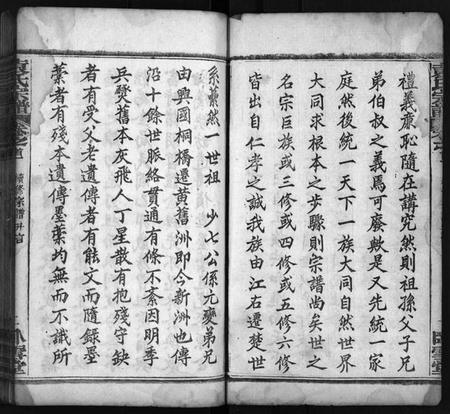 禮義廉恥隨在講究然則祖孫父子兄
弟伯叔之義焉可廢歟是又先統一家
庭然後統一天下一族大同自然世界
大同求根本之步驟則宗譜尚矣世之
名宗巨族或三修或四修或五修六修
皆出自仁孝之誠我族由江右遷楚世
系蕭然一世祖 少七公係元變弟兄
由興國桐橋遷黃舊洲即今新洲也傳
沿十餘世脈絡貫通有條不紊因明季
兵燹舊本灰飛人丁星散有抱殘守缺
者有受父老遺傳者有能文而隨錄墨
藁者有殘本遺傳墨藁均無而不識所
氏宗譜